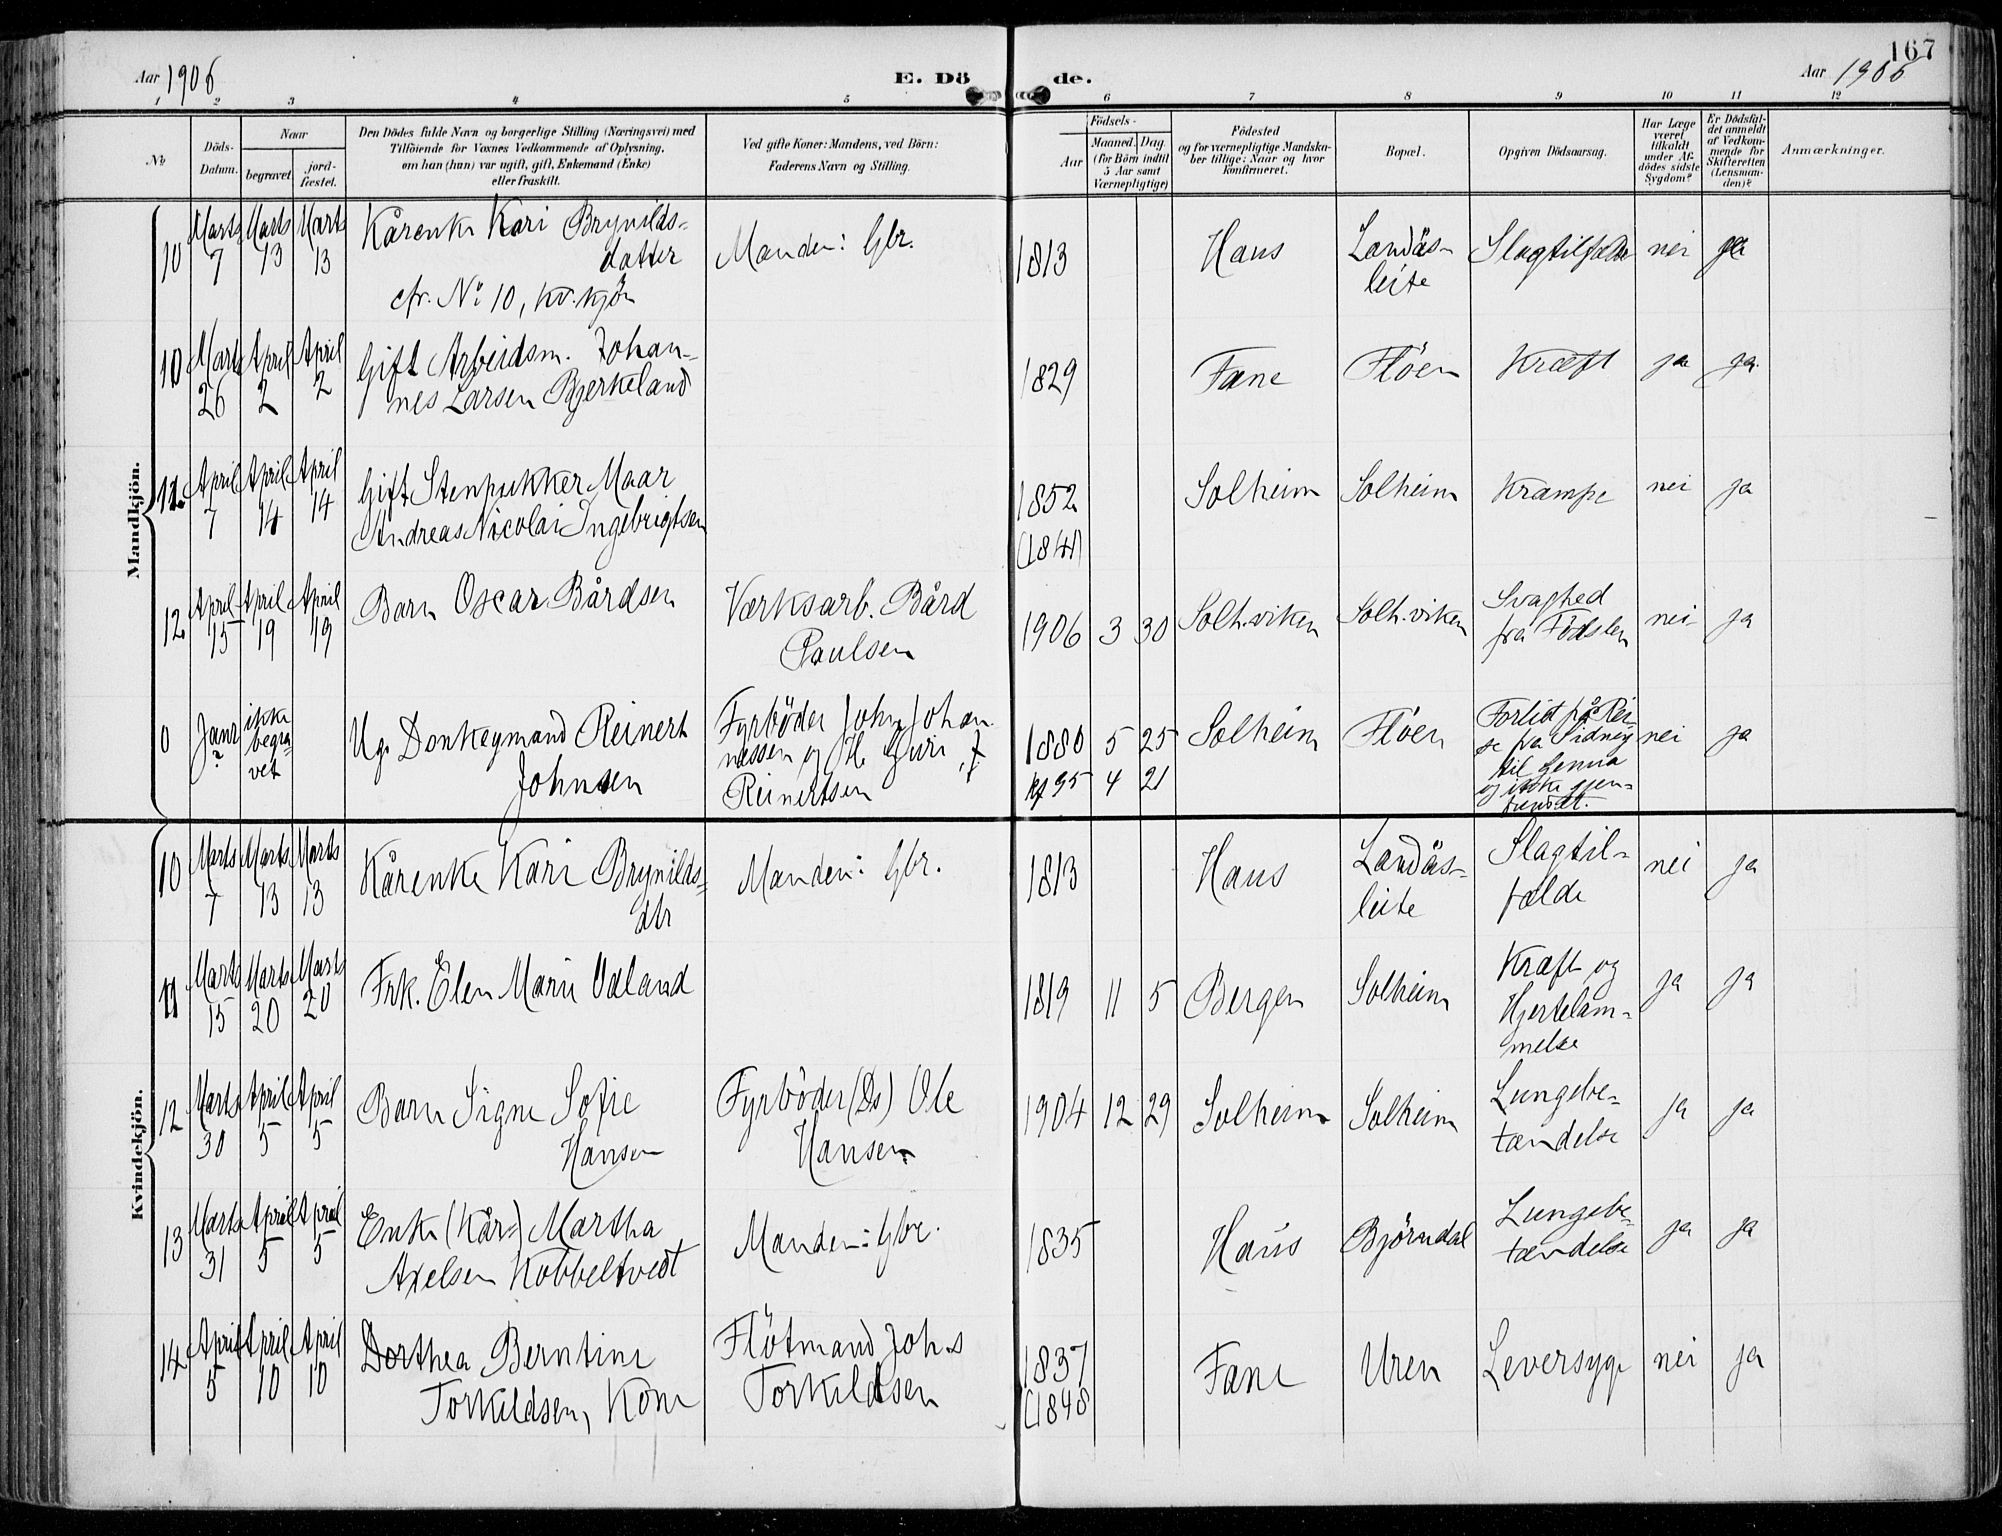 167
Aar 1906
E. Dö
de.
Aar 1906
1 2 3 4 5 6 7 8 9 10 11 12
No
Döds-
Datum.
Naar
begravet
jord-
fæstet.
Den Dödes fulde Navn og borgerlige Stilling (Næringsvei) med
Tilföiende for Voxnes Vedkommende af Oplysning,
om han (hun) var ugift, gift, Enkemand (Enke)
eller fraskilt.
Ved gifte Koner: Mandens, ved Börn:
Faderens Navn og Stilling.
Födsels-
Aar
Maaned. Dag.
(for Börn indtil
5 Aar samt
Værnepligtige)
Födested
og for værnepligtige Mandska-
ber tillige: Naar og hvor
konfirmeret.
Bopæl.
Opgiven Dödsaarsag.
Har Læge
været
tilkaldt
under Af-
dödes sidste
Sygdom?
Er Dödsfal-
det anmeldt
af Vedkom-
mende for
Skifteretten
(Lensman-
den)?
Anmærkninger.
Mandkjön.
10 Marts 7 Marts 13 Marts 13 Kårenke Kari Brynilds-
datter
cfr. No 10, kv.kjön
Manden: Gbr. 1813 Haus Landås-
leite
Slagtilfælde nei ja
10 Marts 26 April 2 April 2 Gift Arbeidsm. Johan-
nes Larsen Bjerkeland
1829 Fane Flöen Kræft ja ja.
11. April 7 April 14 April 14 Gift Stenpukker Maar
Andreas Nicolai Ingebrigtsen
1852
(1841)
Solheim Solheim Krampe nei ja
12 April 15 April 19 April 19 Barn Oscar Bårdsen Værksarb. Bård
Paulsen
1906 3 30 Solh.viken Solh.viken Svaghed
fra Födslen
nei ja
0 Janr ? ikke
begra-
vet
Ug. Donkeymand Reinert
Johnsen
Fyrböder John Johan
nessen og H. Guri
Reinertsen
1880 5 25
kf 95 4 21
Solheim Flöen Forlist på Rei-
se fra Sidney
til
og ikke gjen-
fundet.
nei ja
Kvindekjön.
10 Marts 7 Marts 13 Marts 13 Kårenke Kari Brynilds-
dtr
Manden: Gbr. 1813 Haus Landås-
leite
Slagtil-
fælde
nei ja
11 Marts 15 Marts 20 Marts 20 Frk. Elen Marie Valand 1819 11 5 Bergen Solheim Kræft og
Hjertelam-
melse
ja ja
12 Marts 30 April 5 April 5 Barn Signe Sofie
Hansen
Fyrböder (Ds) Ole
Hansen
1904 12 29 Solheim Solheim Lungebe-
tændelse
ja ja
13 Marts 31 April 5 April 5 Enke (Kår-) Martha
Axelsen Kobbeltvedt
Manden: Gbr. 1835 Haus Björndal Lungebe-
tændelse
ja ja
14 April 5 April 10 April 10 Dorthea Berntine
Torkildsen, Kone
Flötmand Johs
Torkildsen
1837
(1848
Fane Uren Leversyge nei ja